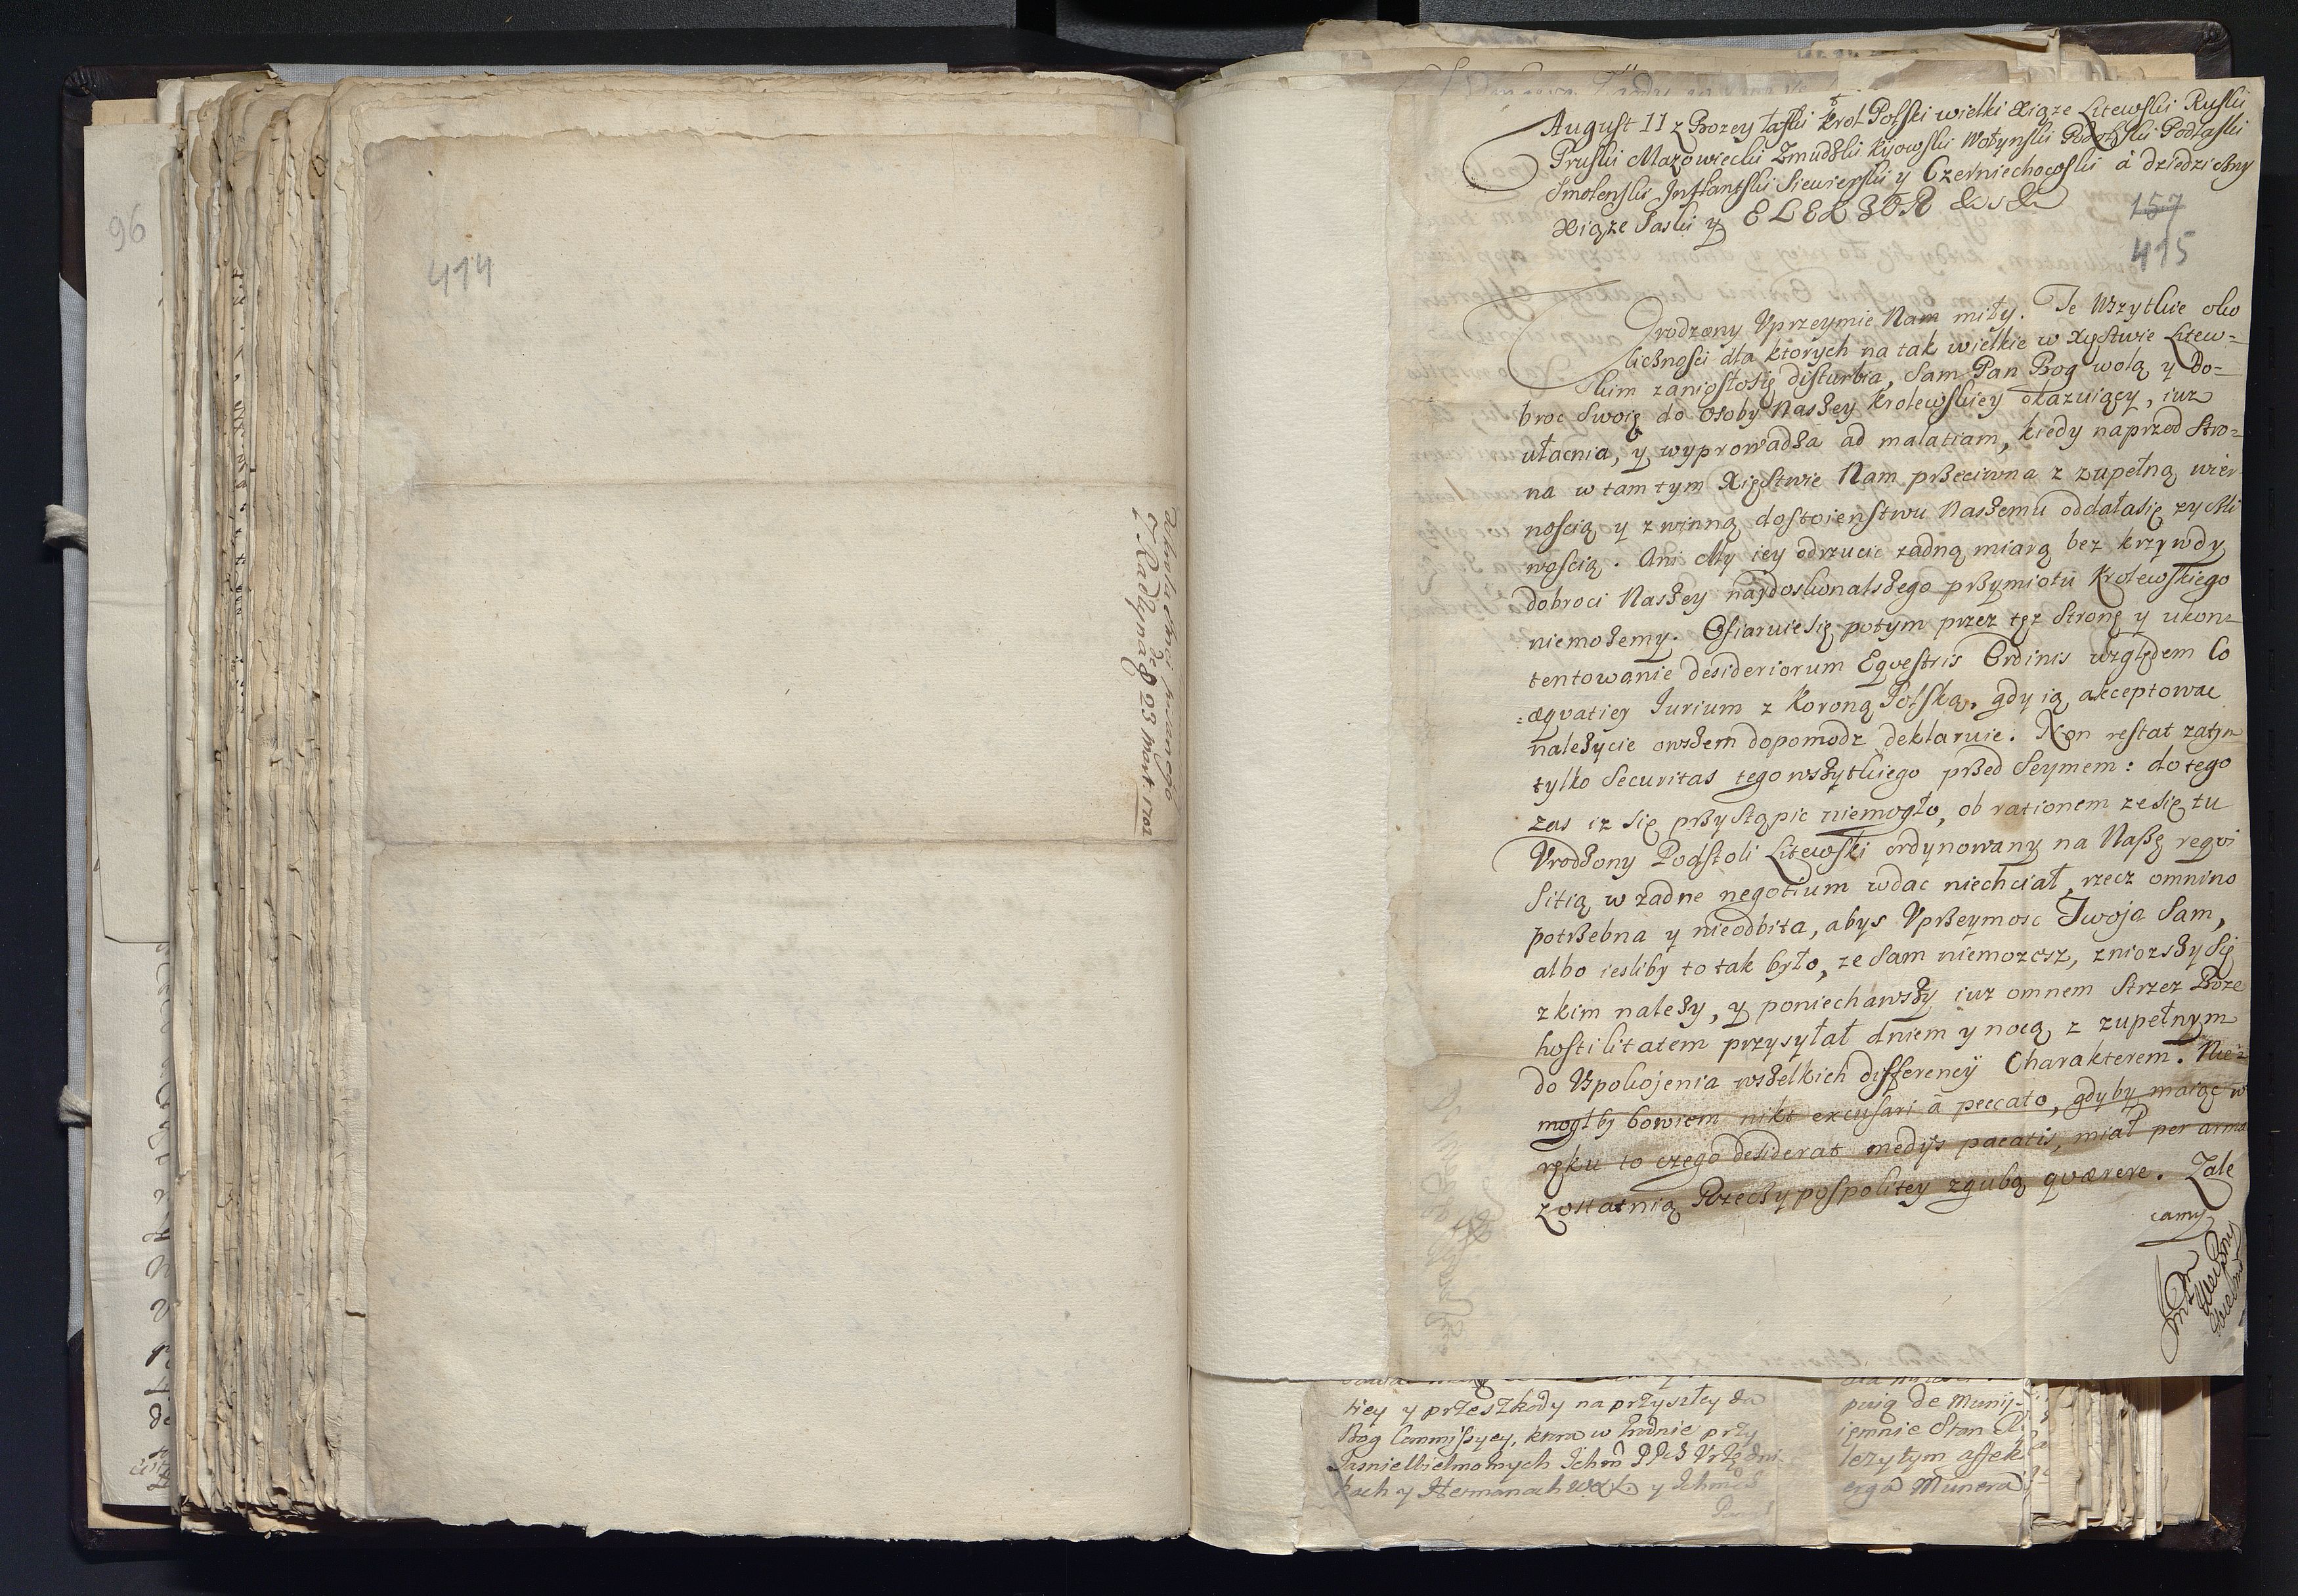 96
414
z Radzynia de 23 Mart: 1702
157
415
August II z Bozey łaski Krol Polski wielki Xiąże Litewski Ruski
Pruski Mazowiecki Zmudzki Kijowski Wołynski Podolski Podlaski
Smolenski Inflantski Siewierski y Czerniechowski à dziedziczny
Xiąze Saski y ELEKTOR
Vrodzony Vprzeymie Nam miły. Te Wszytkie oko
licznosci dla ktorych na tak wielkie w Xięstwie Litew=
skim zaniosłosię disturbia, Sam Pan Bog wolą y Do=
broc Swoię do osoby Naszey Krolewskiey okazuiący, iuz
ułacnia, y wyprowadza ad malatiam, kiedy naprzod Stro=
na w tam tym Xięstwie Nam przeciwna z zupełną wier
noscią y z winną dostoienstwu Naszemu oddałasię zyczli
woscią. Ani My iey odrzucic zadną miarą bez krzywdy
dobroci Naszey naydoskonalszego przymiotu Krolewskiego
niemożemy. Ofiaruie się potym przez tęz Stronę y ukon=
tentowanie desideriorum Eqvestris Ordinis względem Co
=æqvatiey Jurium z Koroną Polską, gdy ią akceptowac
należycie owszem dopomodz deklaruie. Non restat zatym
tylko Securitas tego wszytkiego przed Seymem: do tego
zas iz się przystąpic niemogło, ob rationem ze się tu
Vrodzony Podstoli Litewski ordynowany na Naszę reqvi
sitią w zadne negotium wdac niechciał, rzecz omnino
potrzebna y nieodbita, abys Vprzeymosc Twoja Sam,
albo iesliby to tak było, ze Sam niemozesz, zniozszy Się
z kim nalezy, y poniechawszy iuz omnem Strzez Boze
hostilitatem przysyłał dniem y nocą z zupełnym
do Vspokojenia wszelkich differency Charakterem. Nie=
mogłby bowiem nikt excusari à peccato, gdyby maiąc w
ręku to czego desiderat medijs pacatis, miał per arma
z ostatnią Rzeczypospolitey zgubą qværere. Zale
camy
tiey y przeszkody na przyszłey da
Bog Commissyey, ktora w Grodnie przy
kach y Hetmanach WXL y Ichm
puią de Munij
iemnie Stan
lezytym affek
erga Munera